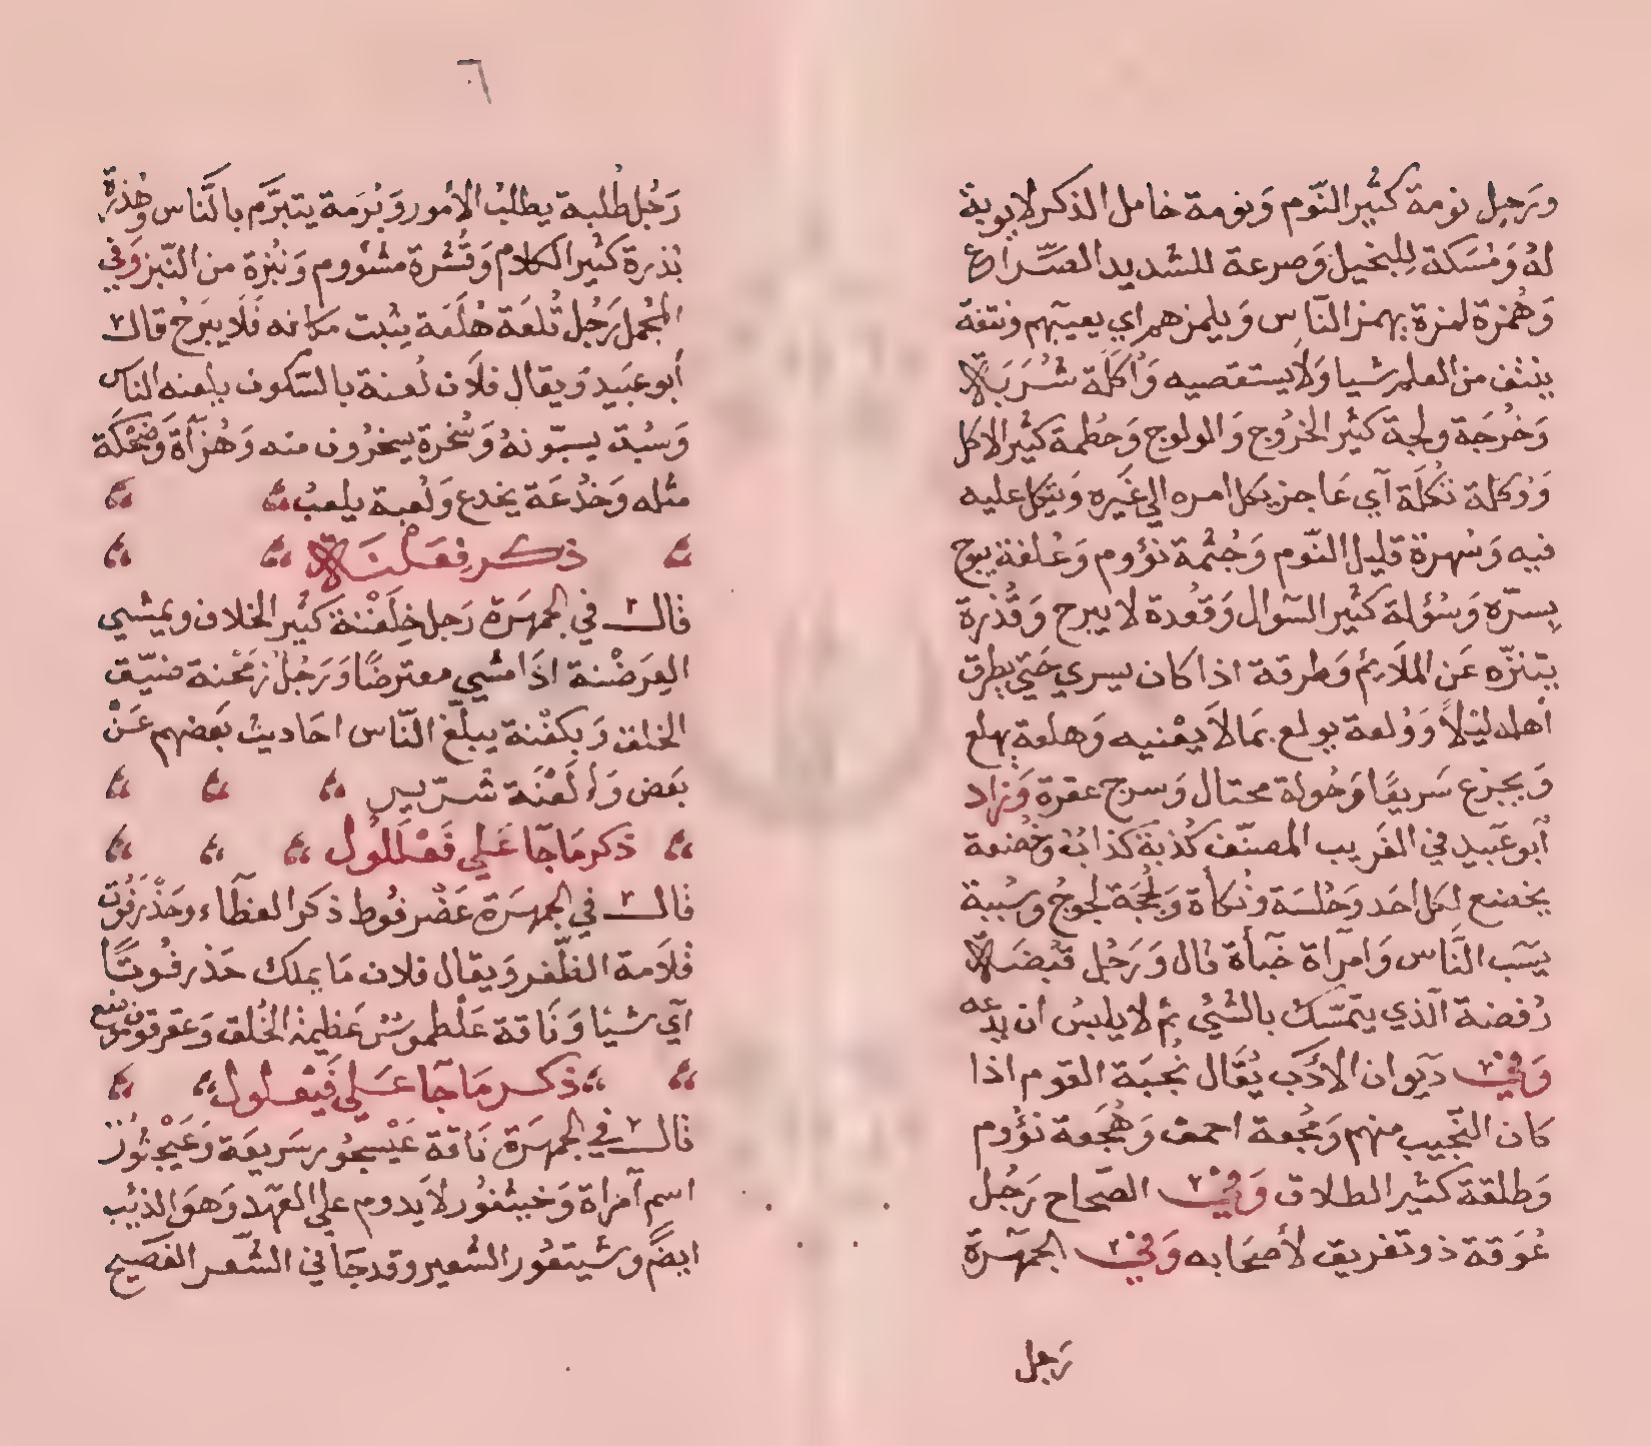 ورَجل نومة كثير النّوم وَنومة خامل الذكر لا يوبة
لهُ وَمُسَكة لِلبخيل وَصرعة للشديد الصّراع
وَهُمزة لمزة يهمز النّاس وَيلمزهم اي يعيبهم ونتفة
ينتف من العلم شيا وَلا يستقصيه وَاُكلَة شُرَبَة
وَخُرجَة ولجة كثير الخرُوج وَالولوج وَحُطمة كثير الاكل
وَوُكلة تُكلَة آي عَاجز يكل امره الي غَيره وَيتكل عليه
فيه وَسُهرة قليل النّوم وَجُثمة نؤوم وَعُلفة يبوح
بِسرّه وَسُؤلة كثير السّوال وَقعُدة لا يبرح وَقُذرة
يتنزّه عَن الملَائم وَطرقة اذا كان يسري حَتي يطرق
أهله ليْلاً وَوُلعة يولع بمَا لاَ يعْنيه وَهلعة يهلع
وَيجزع سَريعًا وَحُولة محتال وَسرج عقرة وَزاد
آبو عَبيد في الغَريب المصنّف كُذبَة كذابُ وخُضعة
يخضع لكل احَد وَجُلسَة وتُكأة وَلُجَجَة لجوجُ وسُببة
يسَبّ النَّاس وَامرَاة خبَأة قال وَرَجُل قُبَضَة
رُفضة الّذي يتمَسّك بالشَيُ ثم لا يلبثُ ان يدعه
وَفيْ ديَوان الادَب يُقَال نُجبَة القوم اذا
كان النّجيب منهم وَمُجعة احمق وَهُجَعة نؤُوم
وَطلقة كثير الطلاق وَفيْ الصّحاح رَجُل
عُوَقة ذو تعَريق لأصحَابه وَفيْ الجمهَرة
رَجل
٦
رَجُل طُلبة يطلبُ الأمور وَبُرَمة يتبرَّم بالنَّاس وهُذرة
بُذرة كثير الكلام وَقُشرة مشؤوم وَنُبزة من النّبز وَفي
المجُمل رَجُل تُلعَة هُلَعَة يثبت مكانه فَلَا يبرَحُ قال
أبو عبَيد وَيقال فلاَن لُعنة بالسّكون يلعنه الناس
وَسُبة يسبّونهُ وَسُخرة يسخرُون منه وَهُزأة وَضُحْكَة
مثله وَخدُعَة يخدع وَلُعبة يلعبُ
ذكر فِعَلْنَة
قال في الجمهَرَة رَجل خِلَفْنة كَثير الخلاف ويمشي
العِرَضْنة اذَا مشي معترضًا وَرَجُل زمَحْنة ضيّق
الخلق وَبِكفْنة يبلّغ النّاس احَاديث بَعَضهم عَنْ
بَعَض وَألَعْنَة شرّير
ذكر مَا جَآ عَلي فَعْلَلُول
قال في الجمهَرَة عَضْرفُوط ذكر العظَاء وحَذْرَفُوت
قلاَمة الظّفر وَيقال فلان مَا يملك حَذرفُوتًا
آي شيئا وَنَاقة عَلْطموسُ عَظيمة الخُلق وَعقرقون موضع
ذكر مَا جَآ عَلي فَيْعَلول
قال في الجمهَرَة نَاقة عَيْسجُور سَريعَة وَعَيْجثُوز
اسم آمرَاة وَخيثعُور لاَ يَدوم علي العَهَد وَهوَ الذئب
ايضًا وشيتعُور الشعير وقد جَآ في الشَعر الفصَيح